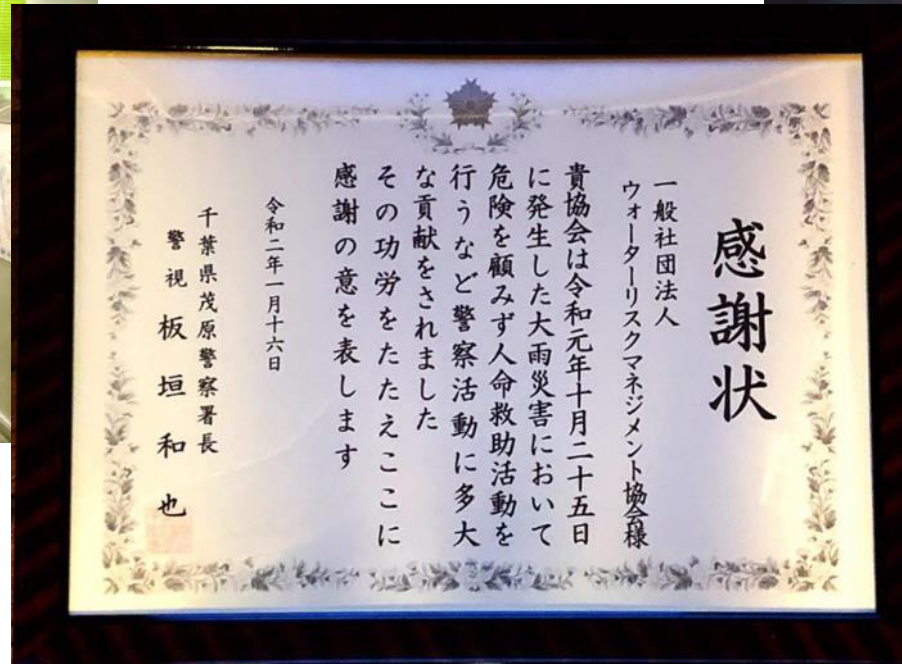 感謝状
一般社団法人
ウォーターリスクマネジメント協会様
貴協会は令和元年十月二十五日
に発生した大雨災害において
危険を顧みず人命救助活動を
行うなど警察活動に多大
な貢献をされました
その功労をたたえここに
感謝の意を表します
令和二年一月十六日
千葉県茂原警察署長
警視 板垣和也